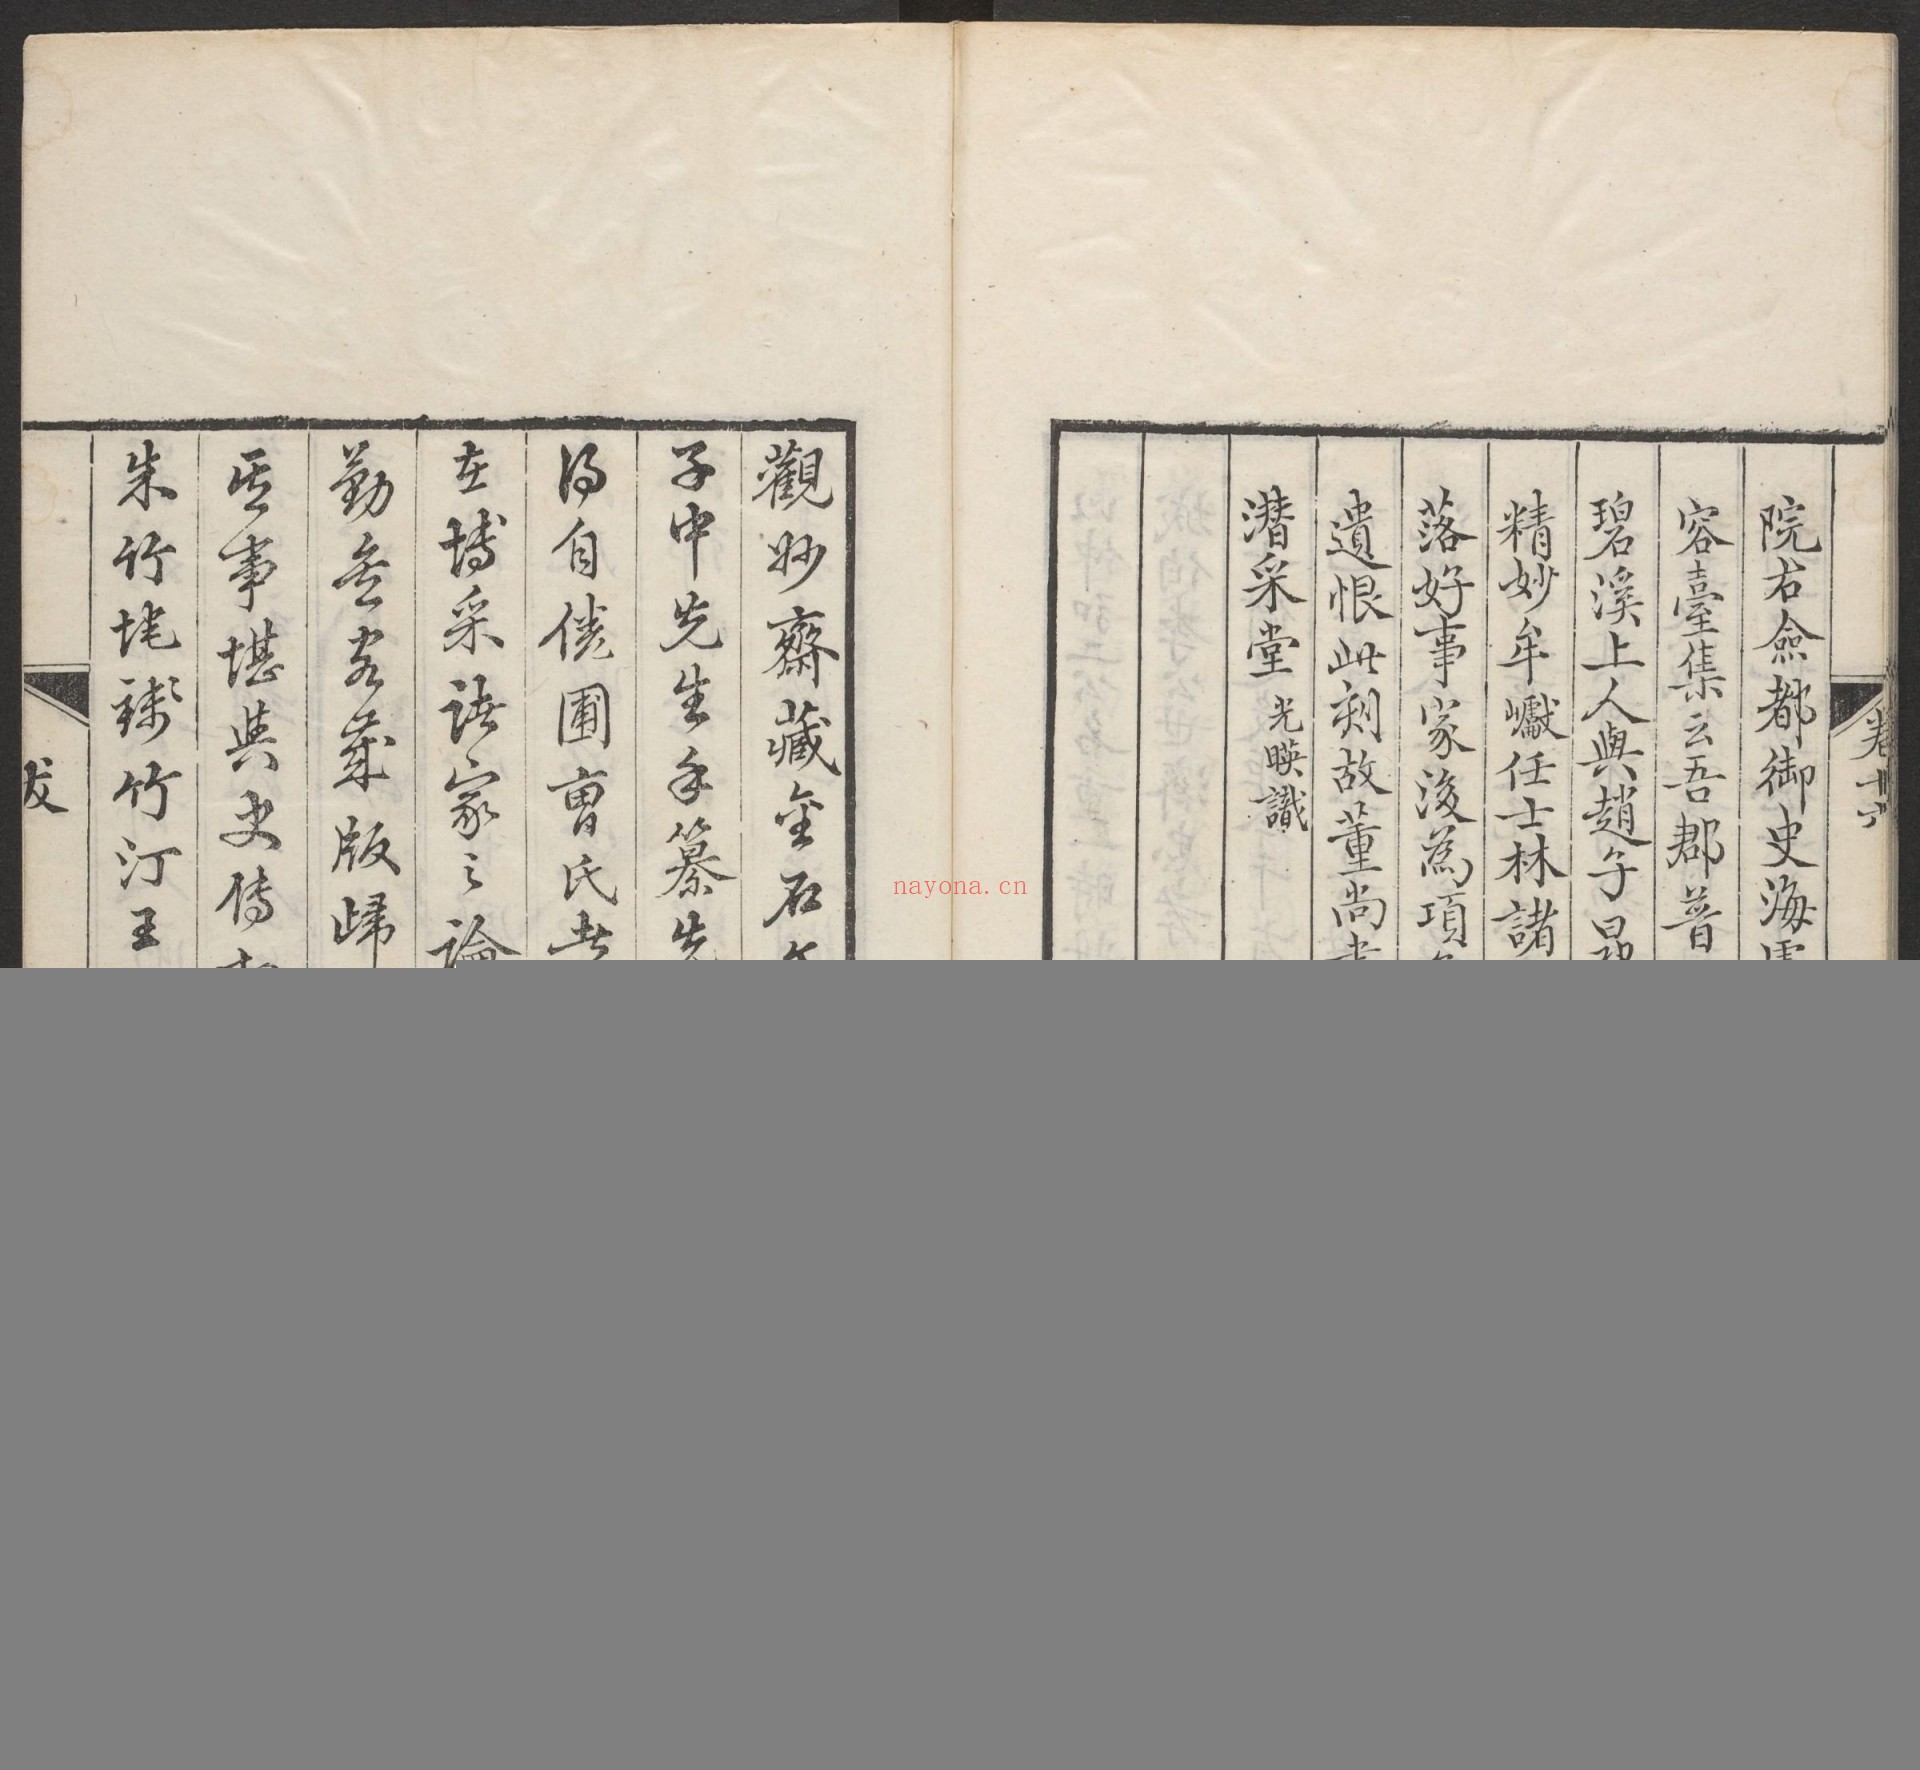 卷十六
院右僉都御史海
容臺集云吾郡普
碧溪上人與趙子昂
精妙牟巘任士林諸
落好事家後為項
遺恨此刻故董尚書
潛采堂 光暎識
觀妙齋藏金石
子中先生手纂先
得自倦圃曹氏者
在博采諸家之論
勤無書成版歸
其事堪與史傳
朱竹垞 竹汀王
跋
nayona.cn